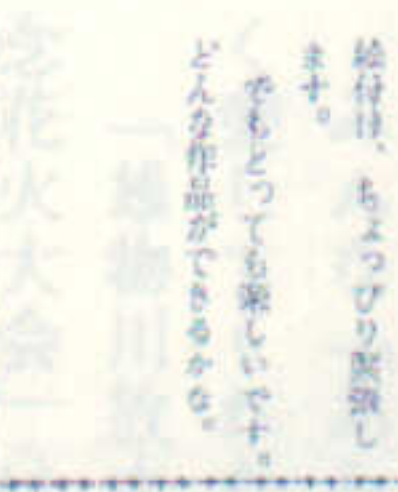 絵付は、ちょっぴり緊張し
ます。
でもとっても楽しいです。
どんな作品ができるかな。